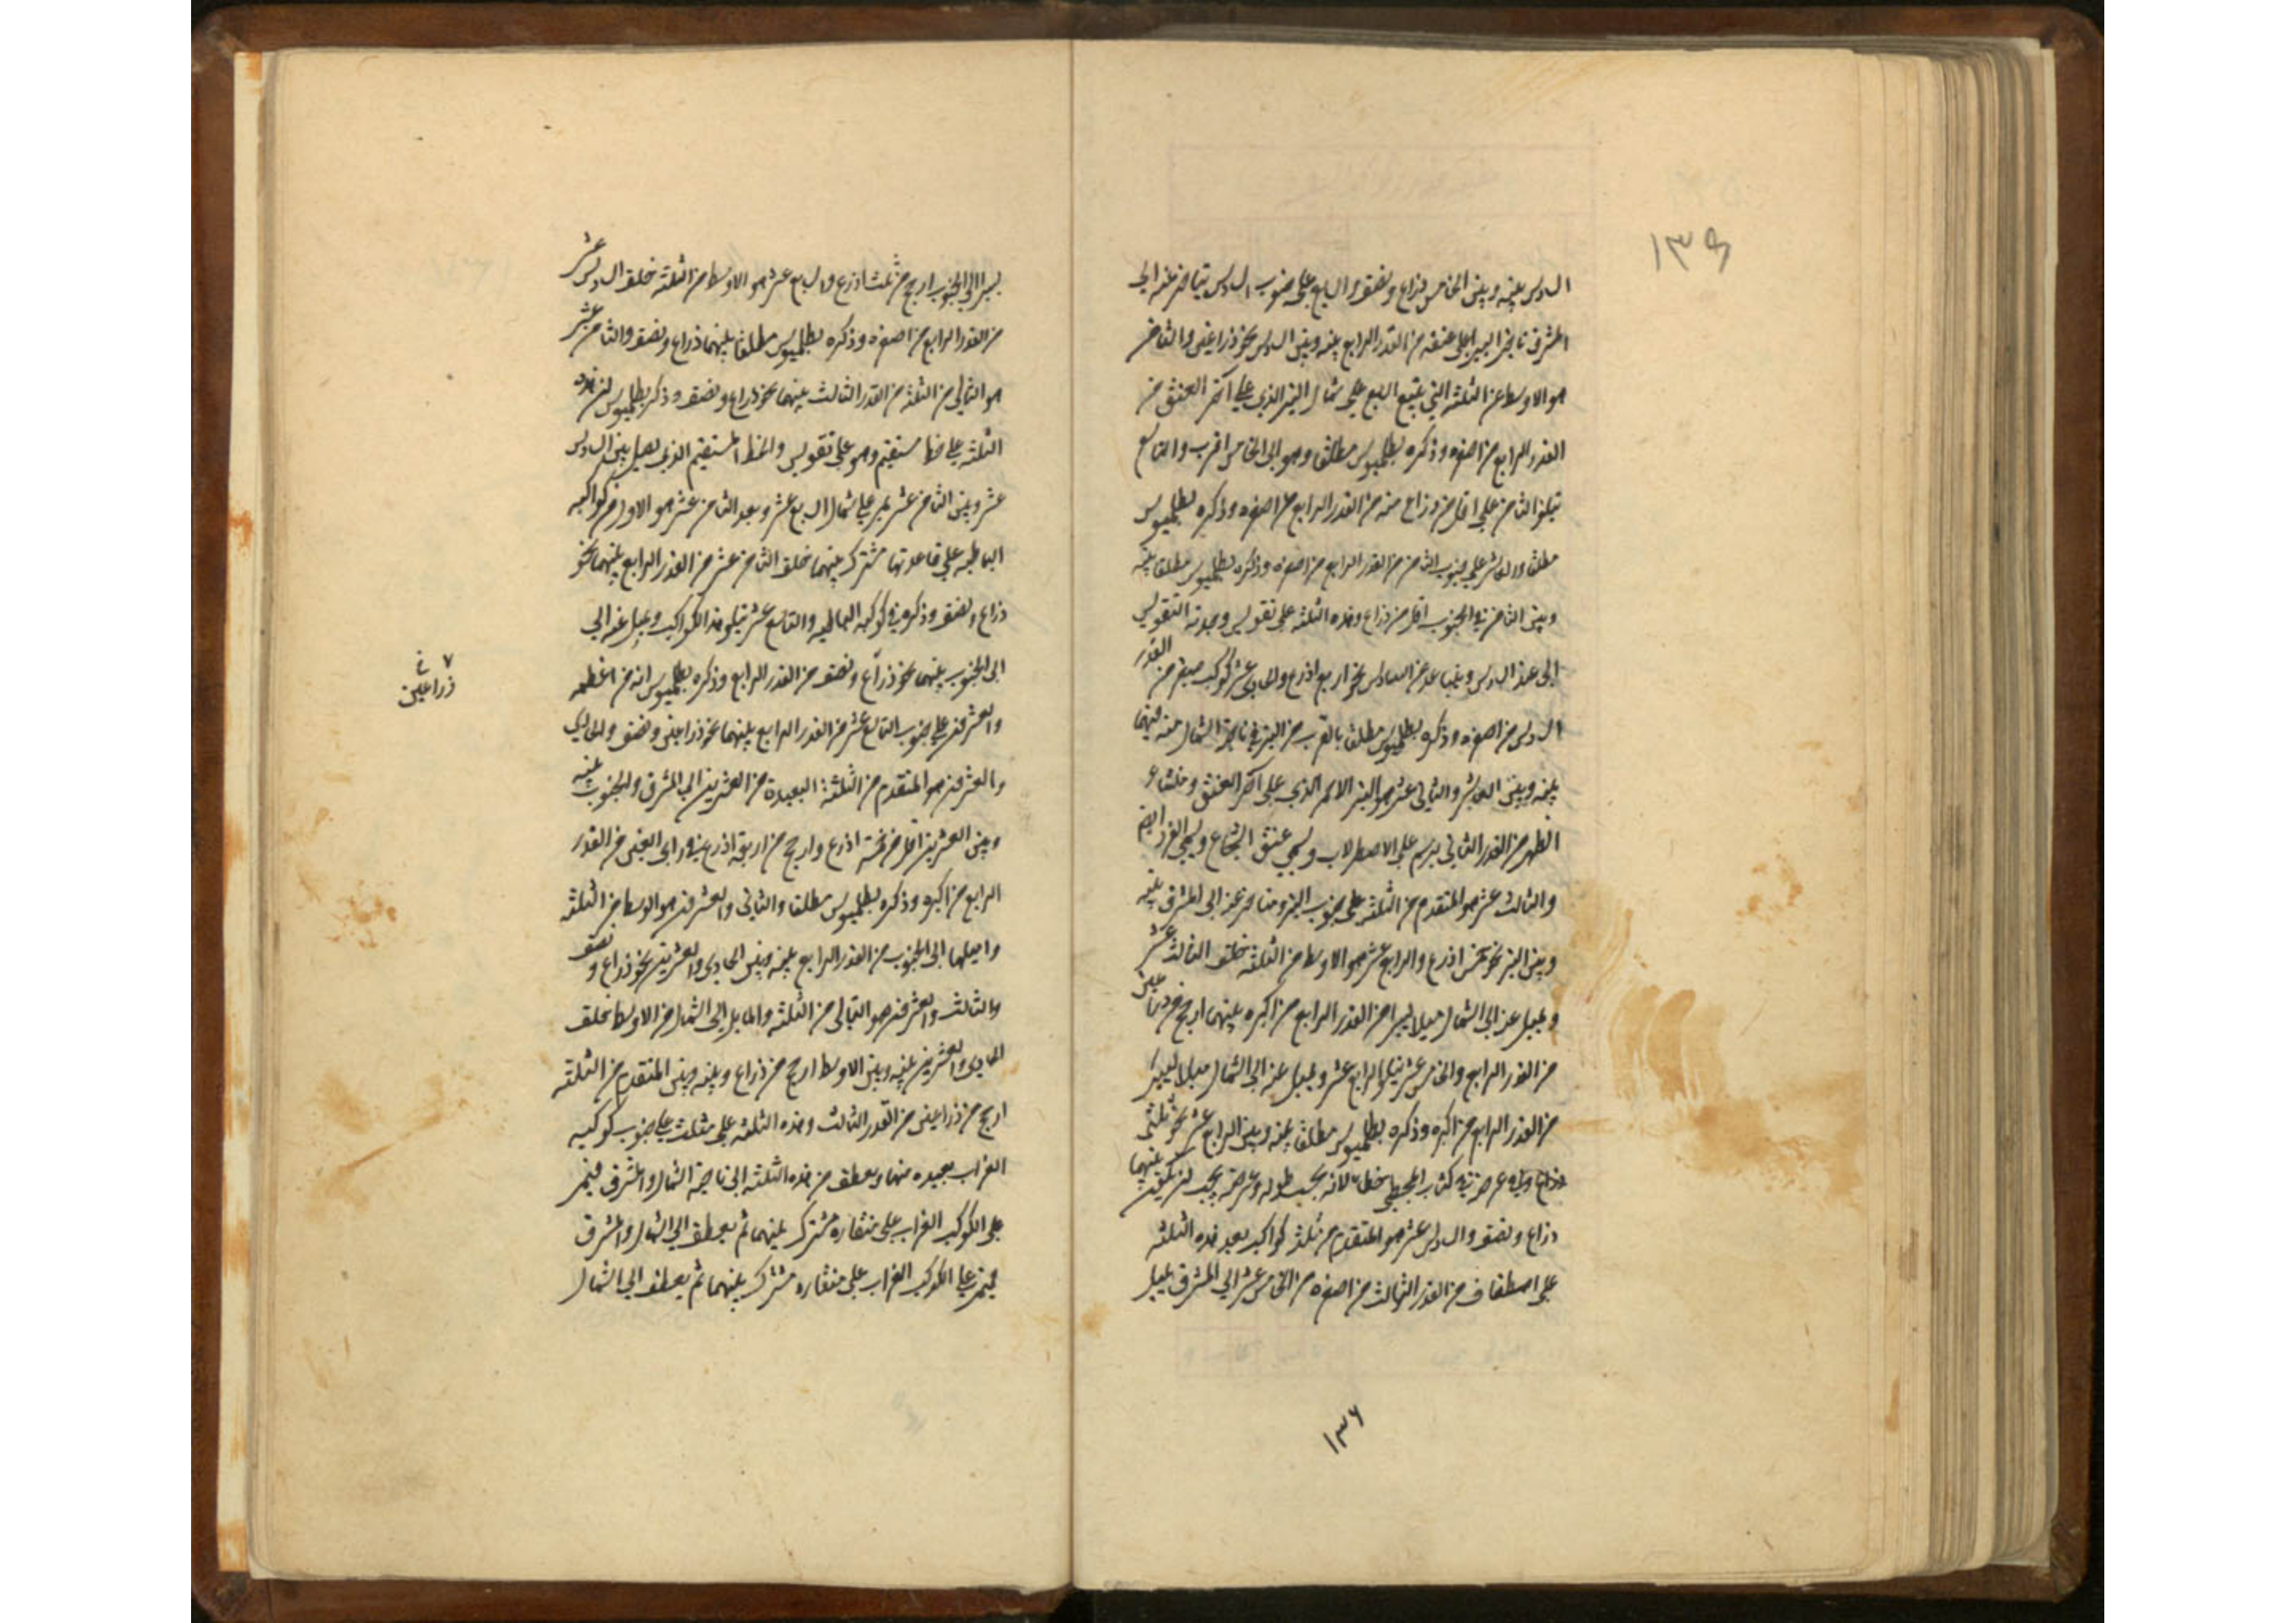 ١٣٩
السادس بينه وبين الخامس ذراع ونصف والسابع على جنوب السادس يتاخر عنه الى
المشرق تاخرا يسيرا على عنقه من القدر الرابع بينه وبين السادس نحو ذراعين والثامن
هو الاوسط من الثلثة التي يتبع السابع على شمال النير الذي على آخر العنق من
القدر الرابع من اصغره وذكره بطلميوس مطلقا وهو الى الخامس اقرب والتاسع
يتلو الثامن على اقل من ذراع منه من القدر الرابع من اصغره وذكره بطلميوس
مطلقا والعاشر على جنوب الثامن من القدر الرابع من اصغره وذكره بطلميوس مطلقا بينه
وبين الثامن في الجنوب اقل من ذراع وهذه الثلثة على تقويس وحدبة التقويس
الى عند السادس ويتباعد عن السادس نحو اربع اذرع والحادي عشر كوكب صغير من القدر
السادس من اصغره وذكره بطلميوس مطلقا بالقرب من النير في ناحية الشمال منه فيما
بينه وبين العاشر والثاني عشر هو النير الاحمر الذي على آخر العنق ومنشاء
الظهر من القدر الثاني يرسم على الاصطرلاب ويسمى عنق الشجاع ويسمى الفرد ايضا
والثالث عشر هو المتقدم من الثلثة على جنوب النير ومتاخر عنه الى المشرق بينه
وبين النير نحو خمس اذرع والرابع عشر هو الاوسط من الثلثة خلف الثالث عشر
ويميل عنه الى الشمال ميلا يسيرا من القدر الرابع من اكبره بينهما ارجح من ذراعين
من القدر الرابع والخامس عشر يتلو الرابع عشر ويميل عنه الى الشمال ميلا يسيرا
من القدر الرابع من اكبره وذكره بطلميوس مطلقا بينه وبين الرابع عشر نحو ثلثى
ذراع وعرضه في كتاب المجسطي خطاء لانه بحسب طوله وعرضه يجب ان يكون بينهما
ذراع ونصف والسادس عشر هو المتقدم من ثلثة كواكب بعد هذه الثلثة
على اصطفاف من القدر الثالث من اصغره من الخامس عشر الى المشرق يميل
١٣٦
يسيرا الى الجنوب ارجح من ثلث اذرع والسابع عشر هو الاوسط من الثلثة خلف السادس عشر
من القدر الرابع من اصغره وذكره بطلميوس مطلقا بينهما ذراع ونصف والثامن عشر
هو التالي من الثلثة من القدر الثالث بينهما نحو ذراع ونصف وذكر بطلميوس ان هذه
الثلثة على خط مستقيم وهو على تقويس والخط المستقيم الذي يصل بين السادس
عشر وبين الثامن عشر يمر على شمال السابع عشر وبعد الثامن عشر هو الاول من كواكب
الباطية على قاعدتها مشترك بينهما خلف الثامن عشر من القدر الرابع بينهما نحو
ذراع ونصف وذكره في كوكبة الباطية والتاسع عشر يتلو هذا الكوكب ويميل عنه الى
الى الجنوب بينهما نحو ذراع ونصف من القدر الرابع وذكره بطلميوس انه من اعظمه
والعشرون على جنوب التاسع عشر من القدر الرابع بينهما نحو ذراعين ونصف والحادي
والعشرون هو المتقدم من الثلثة البعيدة من العشرين الى المشرق والجنوب بينه
وبين العشرين اقل من خمسة اذرع وارجح من اربعة اذرع في راى العين من القدر
الرابع من اكبره وذكره بطلميوس مطلقا والثاني والعشرون هو الاوسط من الثلثة
واميلها الى الجنوب من القدر الرابع بينه وبين الحادي والعشرين نحو ذراع ونصف
والثالث والعشرون هو التالى من الثلثة والمايل الى الشمال من الاوسط خلف
الحادي والعشرين بينه وبين الاوسط ارجح من ذراع وبينه وبين المتقدم من الثلثة
ارجح من ذراعين من القدر الثالث وهذه الثلثة على مثلث على جنوب كوكبة
الغراب بعيدة منها ويعطف من هذه الثلثة الى ناحية الشمال والمشرق فيمر
على الكوكب الغراب على منقاره مشترك بينهما ثم يعطف الى الشمال والمشرق
فيمر على الكوكب الغراب على منقاره مشترك بينهما ثم يعطف الى الشمال
ذراعين